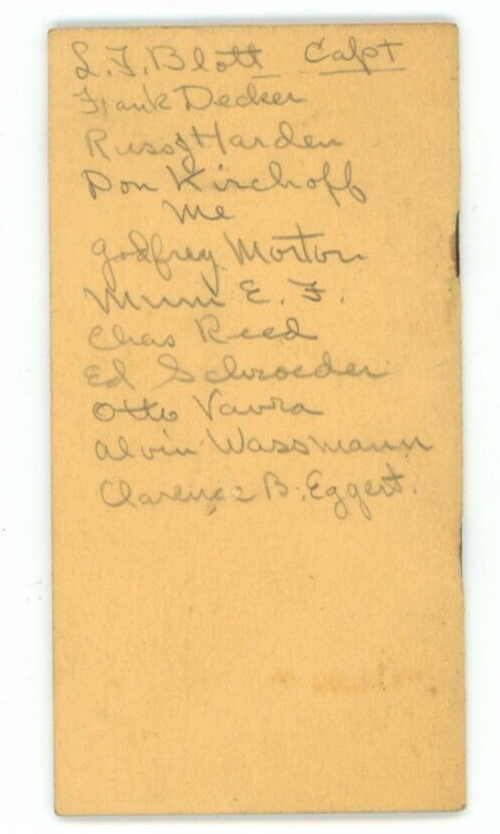 L.J. Blott Capt
Frank Decker
Russ Harden
Don Kirchoff
Me
Godfrey Morton
Mumm E. F.
Chas Reed
Ed Schroeder
Otto Vavra
Alvin Wassmann
Clarence B. Eggert.